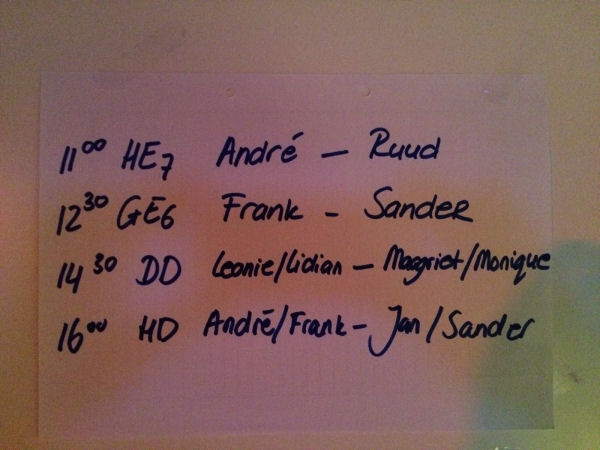 11⁰⁰ HE7 André — Ruud
12³⁰ GE6 Frank - Sander
14³⁰ DD Leonie/Lidian — Margriet/Monique
16⁰⁰ HD André/Frank - Jan/Sander